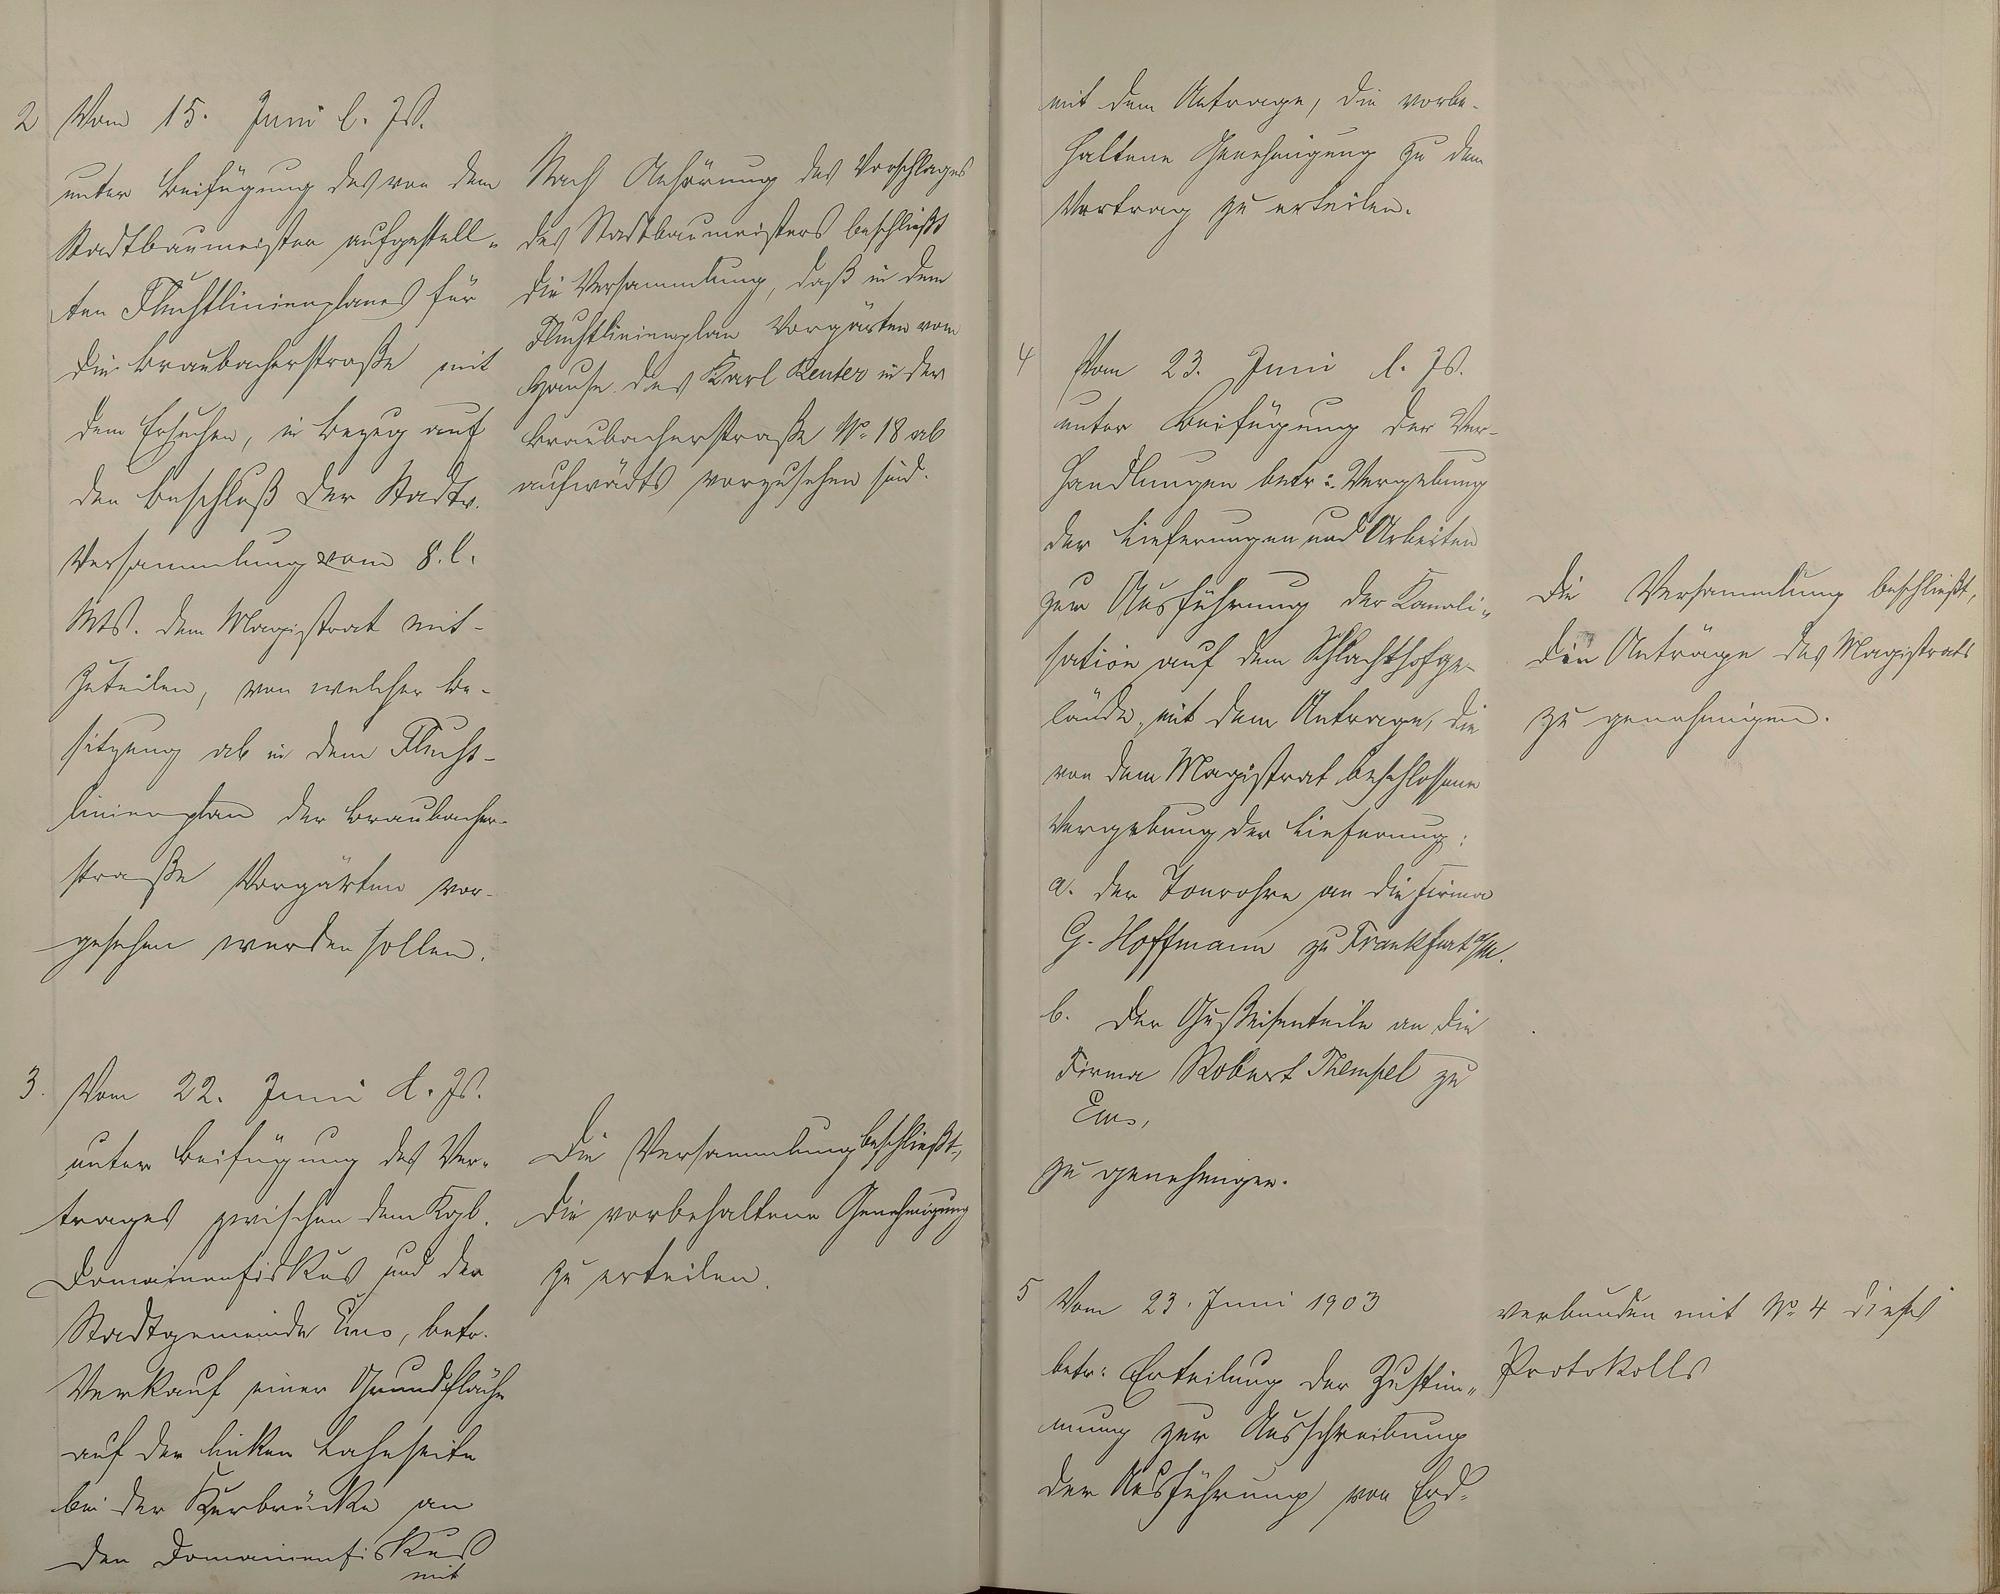 2 Vom 15. Juni l. Js.
unter Beifügung des von dem
Stadtbaumeister aufgestell-
ten Fluchtlinienplanes für
die Braubacherstraße mit
dem Ersuchen, in Bezug auf
den Beschluß der Stadtv.
Versammlung vom 8. l.
Mts. dem Magistrat mit-
zuteilen, von welcher Be-
sitzung ab in dem Flucht-
linienplan der Braubacher-
straße Vorgärten vor-
gesehen werden sollen.
Nach Anhörung des Vorschlages
des Stadtbaumeisters beschließt
die Versammlung, daß in dem
Fluchtlinienplan Vorgärten vom
Hause des Karl Reuter in der
Braubacherstraße No 18 ab
aufwärts vorzusehen sind.
3. Vom 22. Juni l. Js.
unter Beifügung des Ver-
trages zwischen dem Kgl.
Domainenfiskus und der
Stadtgemeinde Ems, betr.
Verkauf einer Grundfläche
auf der linken Lahnseite
bei der Kurbrücke an
den Domainenfiskus
mit
Die Versammlung beschließt,
die vorbehaltene Genehmigung
zu erteilen.
mit dem Antrage, die vorbe-
haltene Genehmigung zu dem
Vertrag zu erteilen.
4 Vom 23. Juni l. Js.
unter Beifügung der Ver-
handlungen betr: Vergebung
der Lieferungen und Arbeiten
zur Ausführung der Kanali-
sation auf dem Schlachthofge-
lände, mit dem Antrage, die
von dem Magistrat beschlossene
Vergebung der Lieferung:
a. der Tonrohre an die Firma
G. Hoffmann zu Frankfurt a/M.
b. der Gußeisenteile an die
Firma Robert Thempel zu
Ems,
zu genehmigen.
Die Versammlung beschließt,
die Anträge des Magistrats
zu genehmigen.
5 Vom 23. Juni 1903
betr: Erteilung der Zustim-
mung zur Ausschreibung
der Ausführung von Erd-
verbunden mit No 4 dieses
Protokolls